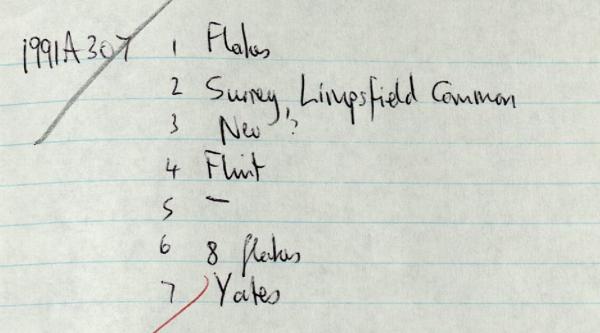 1991A307 1 Flakes
2 Surrey, Limpsfield Common
3 Neo ?
4 Flint
5 –
6 8 flakes
7 Yates